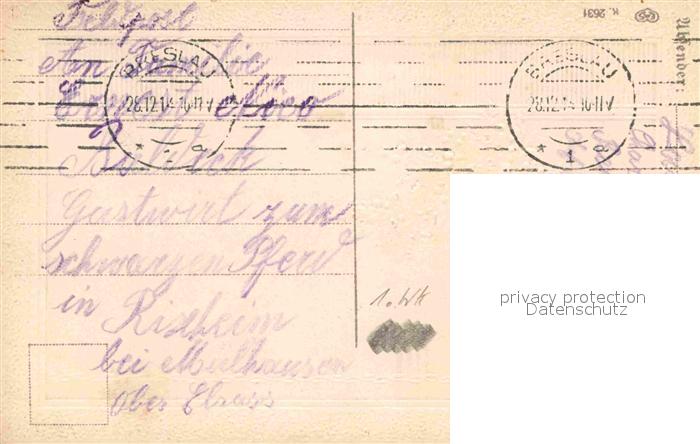 Feldpost
An Familie
Ernst
Gastwirt zum
schwarzen Pferd
in Rixheim
bei Mülhausen
Ober Elsass
BRESLAU
28.12.14 10-11 V.
* 1 a
BRESLAU
28.12.14 10-11 V.
* 1 a
K. 2631
Absender:
1. WK
privacy protection
Datenschutz